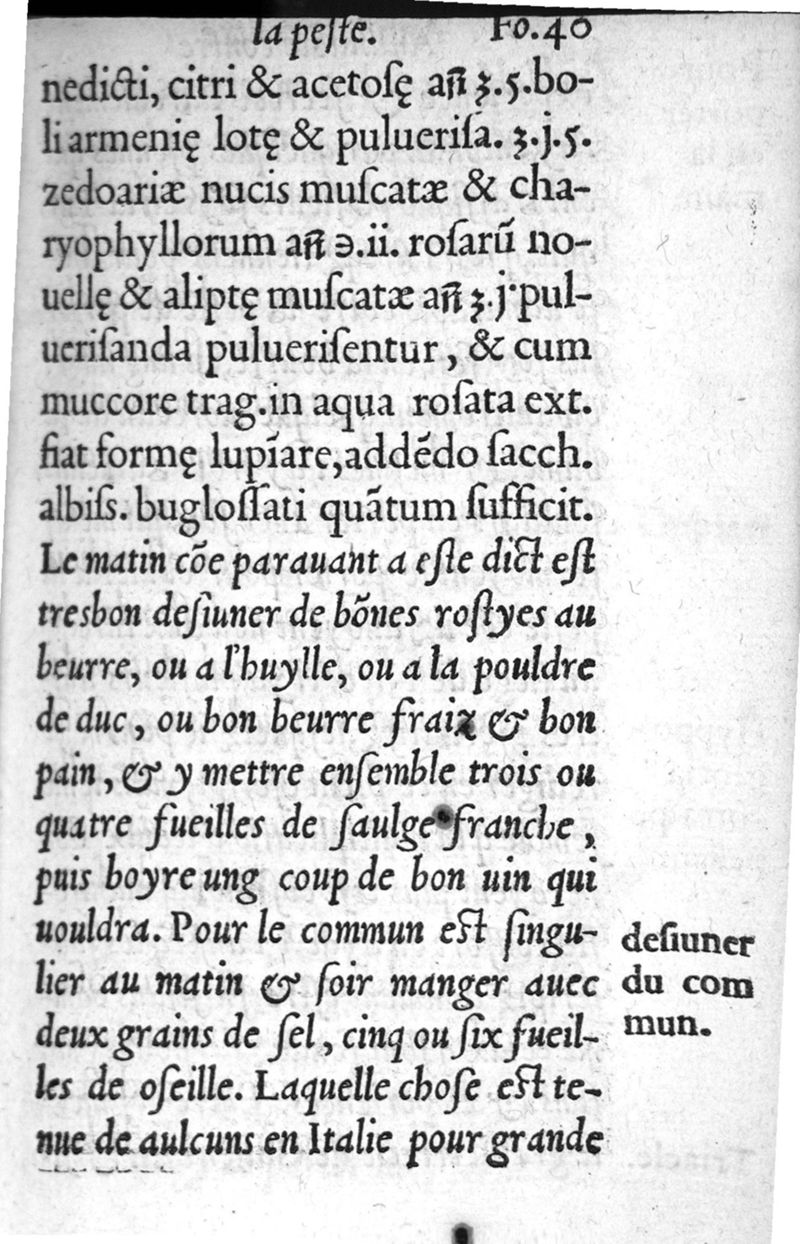 la peſte. Fo.40
nedicti, citri & acetoſę añ ʒ.5.bo-
li armenię lotę & pulueriſa. ʒ.j.5.
zedoariæ nucis muſcatæ & cha-
ryophyllorum añ ℈.ii. roſarũ no-
uellę & aliptę muſcatæ añ ʒ.j.pul-
ueriſanda pulueriſentur, & cum
muccore trag.in aqua roſata ext.
fiat formę lupĩare,addẽdo ſacch.
albiſs. bugloſſati quãtum ſufficit.
Le matin cõe parauant a eſte dict eſt
tresbon deſiuner de bõnes roſtyes au
beurre, ou a l'huylle, ou a la pouldre
de duc, ou bon beurre fraiz & bon
pain, & y mettre enſemble trois ou
quatre fueilles de ſaulge franche,
puis boyre ung coup de bon uin qui
uouldra. Pour le commun eſt ſingu-
lier au matin & ſoir manger auec
deux grains de ſel, cinq ou ſix fueil-
les de oſeille. Laquelle choſe eſt te-
nue de aulcuns en Italie pour grande
deſiuner
du com
mun.